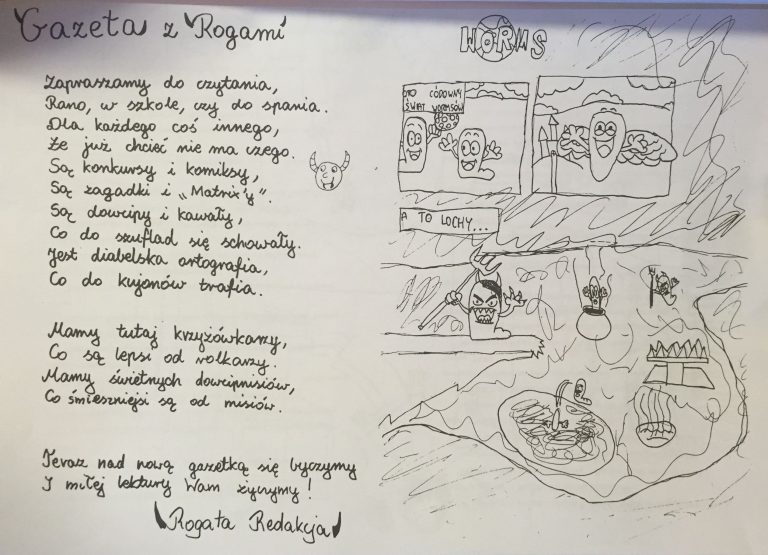 Gazeta z Rogami
Zapraszamy do czytania,
Rano, w szkole, czy do spania.
Dla każdego coś innego,
Że już chcieć nie ma czego.
Są konkursy i komiksy,
Są zagadki i „Matrix'y".
Są dowcipy i kawały,
Co do szuflad się schowały.
Jest diabelska ortografia,
Co do kujonów trafia.
Mamy tutaj krzyżówkarzy,
Co są lepsi od rolkarzy.
Mamy świetnych dowcipnisiów,
Co śmieszniejsi są od misiów.
Teraz nad nową gazetką się byczymy
I miłej lektury Wam życzymy!
Rogata Redakcja
WORMS
OTO CÓDOWNY
ŚWIAT WORMSÓW
A TO LOCHY...